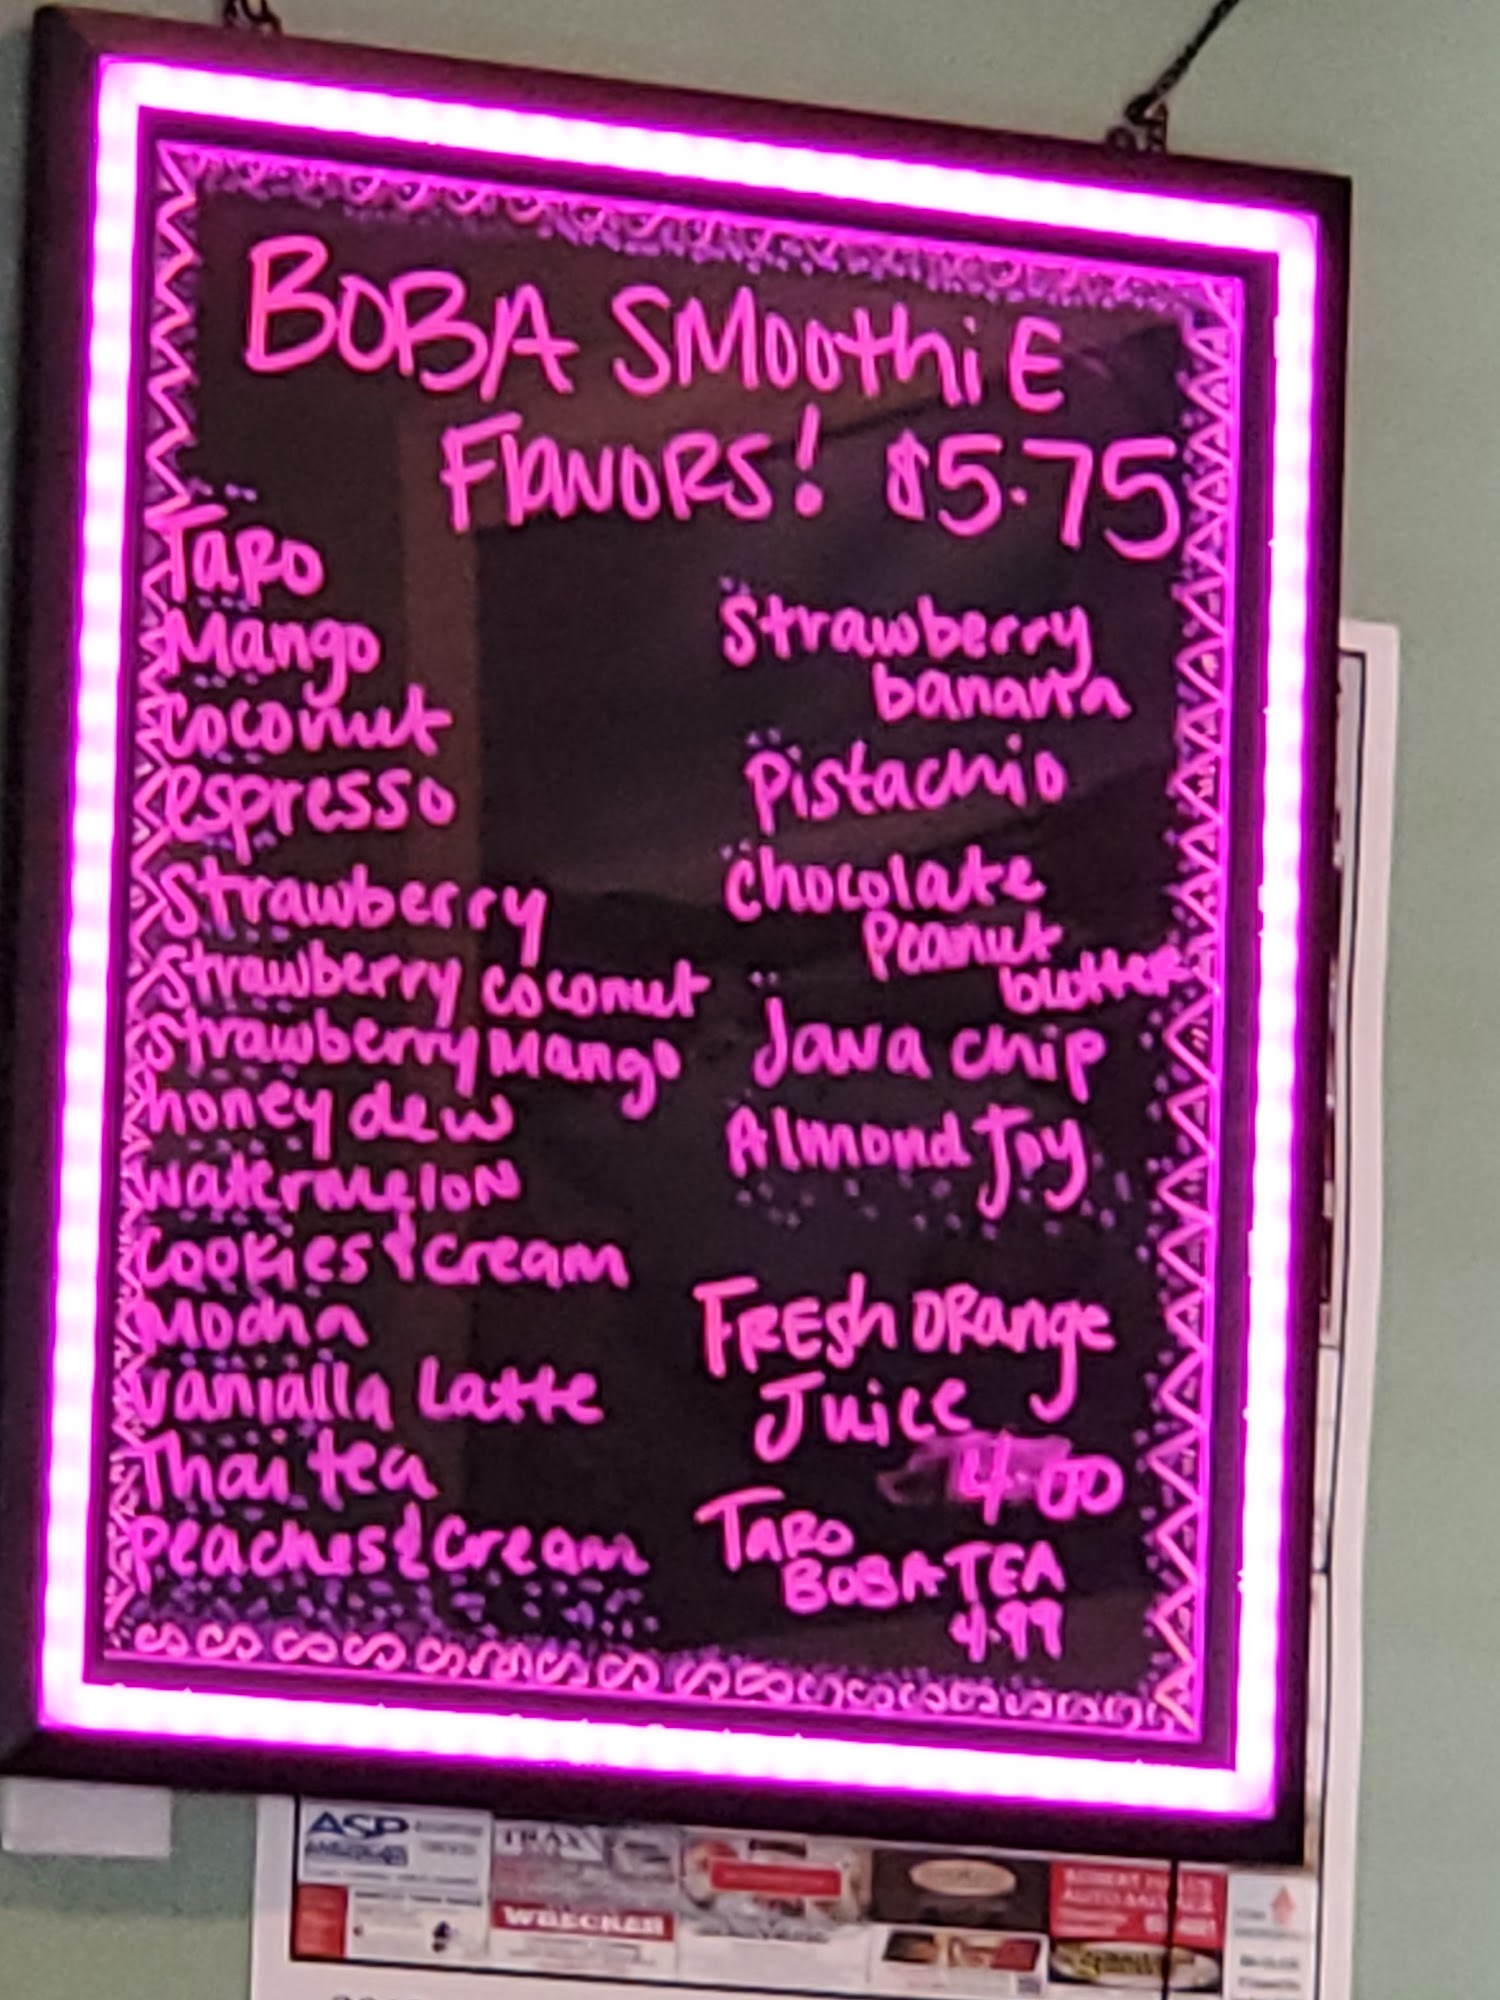 BOBA SMoothiE
FlavoRS! $5.75
TaRo
Mango
Coconut
espresso
Strawberry
Strawberry coconut
Strawberry Mango
honey dew
watermelon
Cookies & cream
Mocha
vanialla Latte
Thai tea
peaches & Cream
Strawberry
banana
Pistachio
Chocolate
Peanut
butter
Java chip
Almond Joy
FREsh ORange
Juice
4.00
TaRo
BOBA TEA
4.99
ASP
TRAX
WRECKER